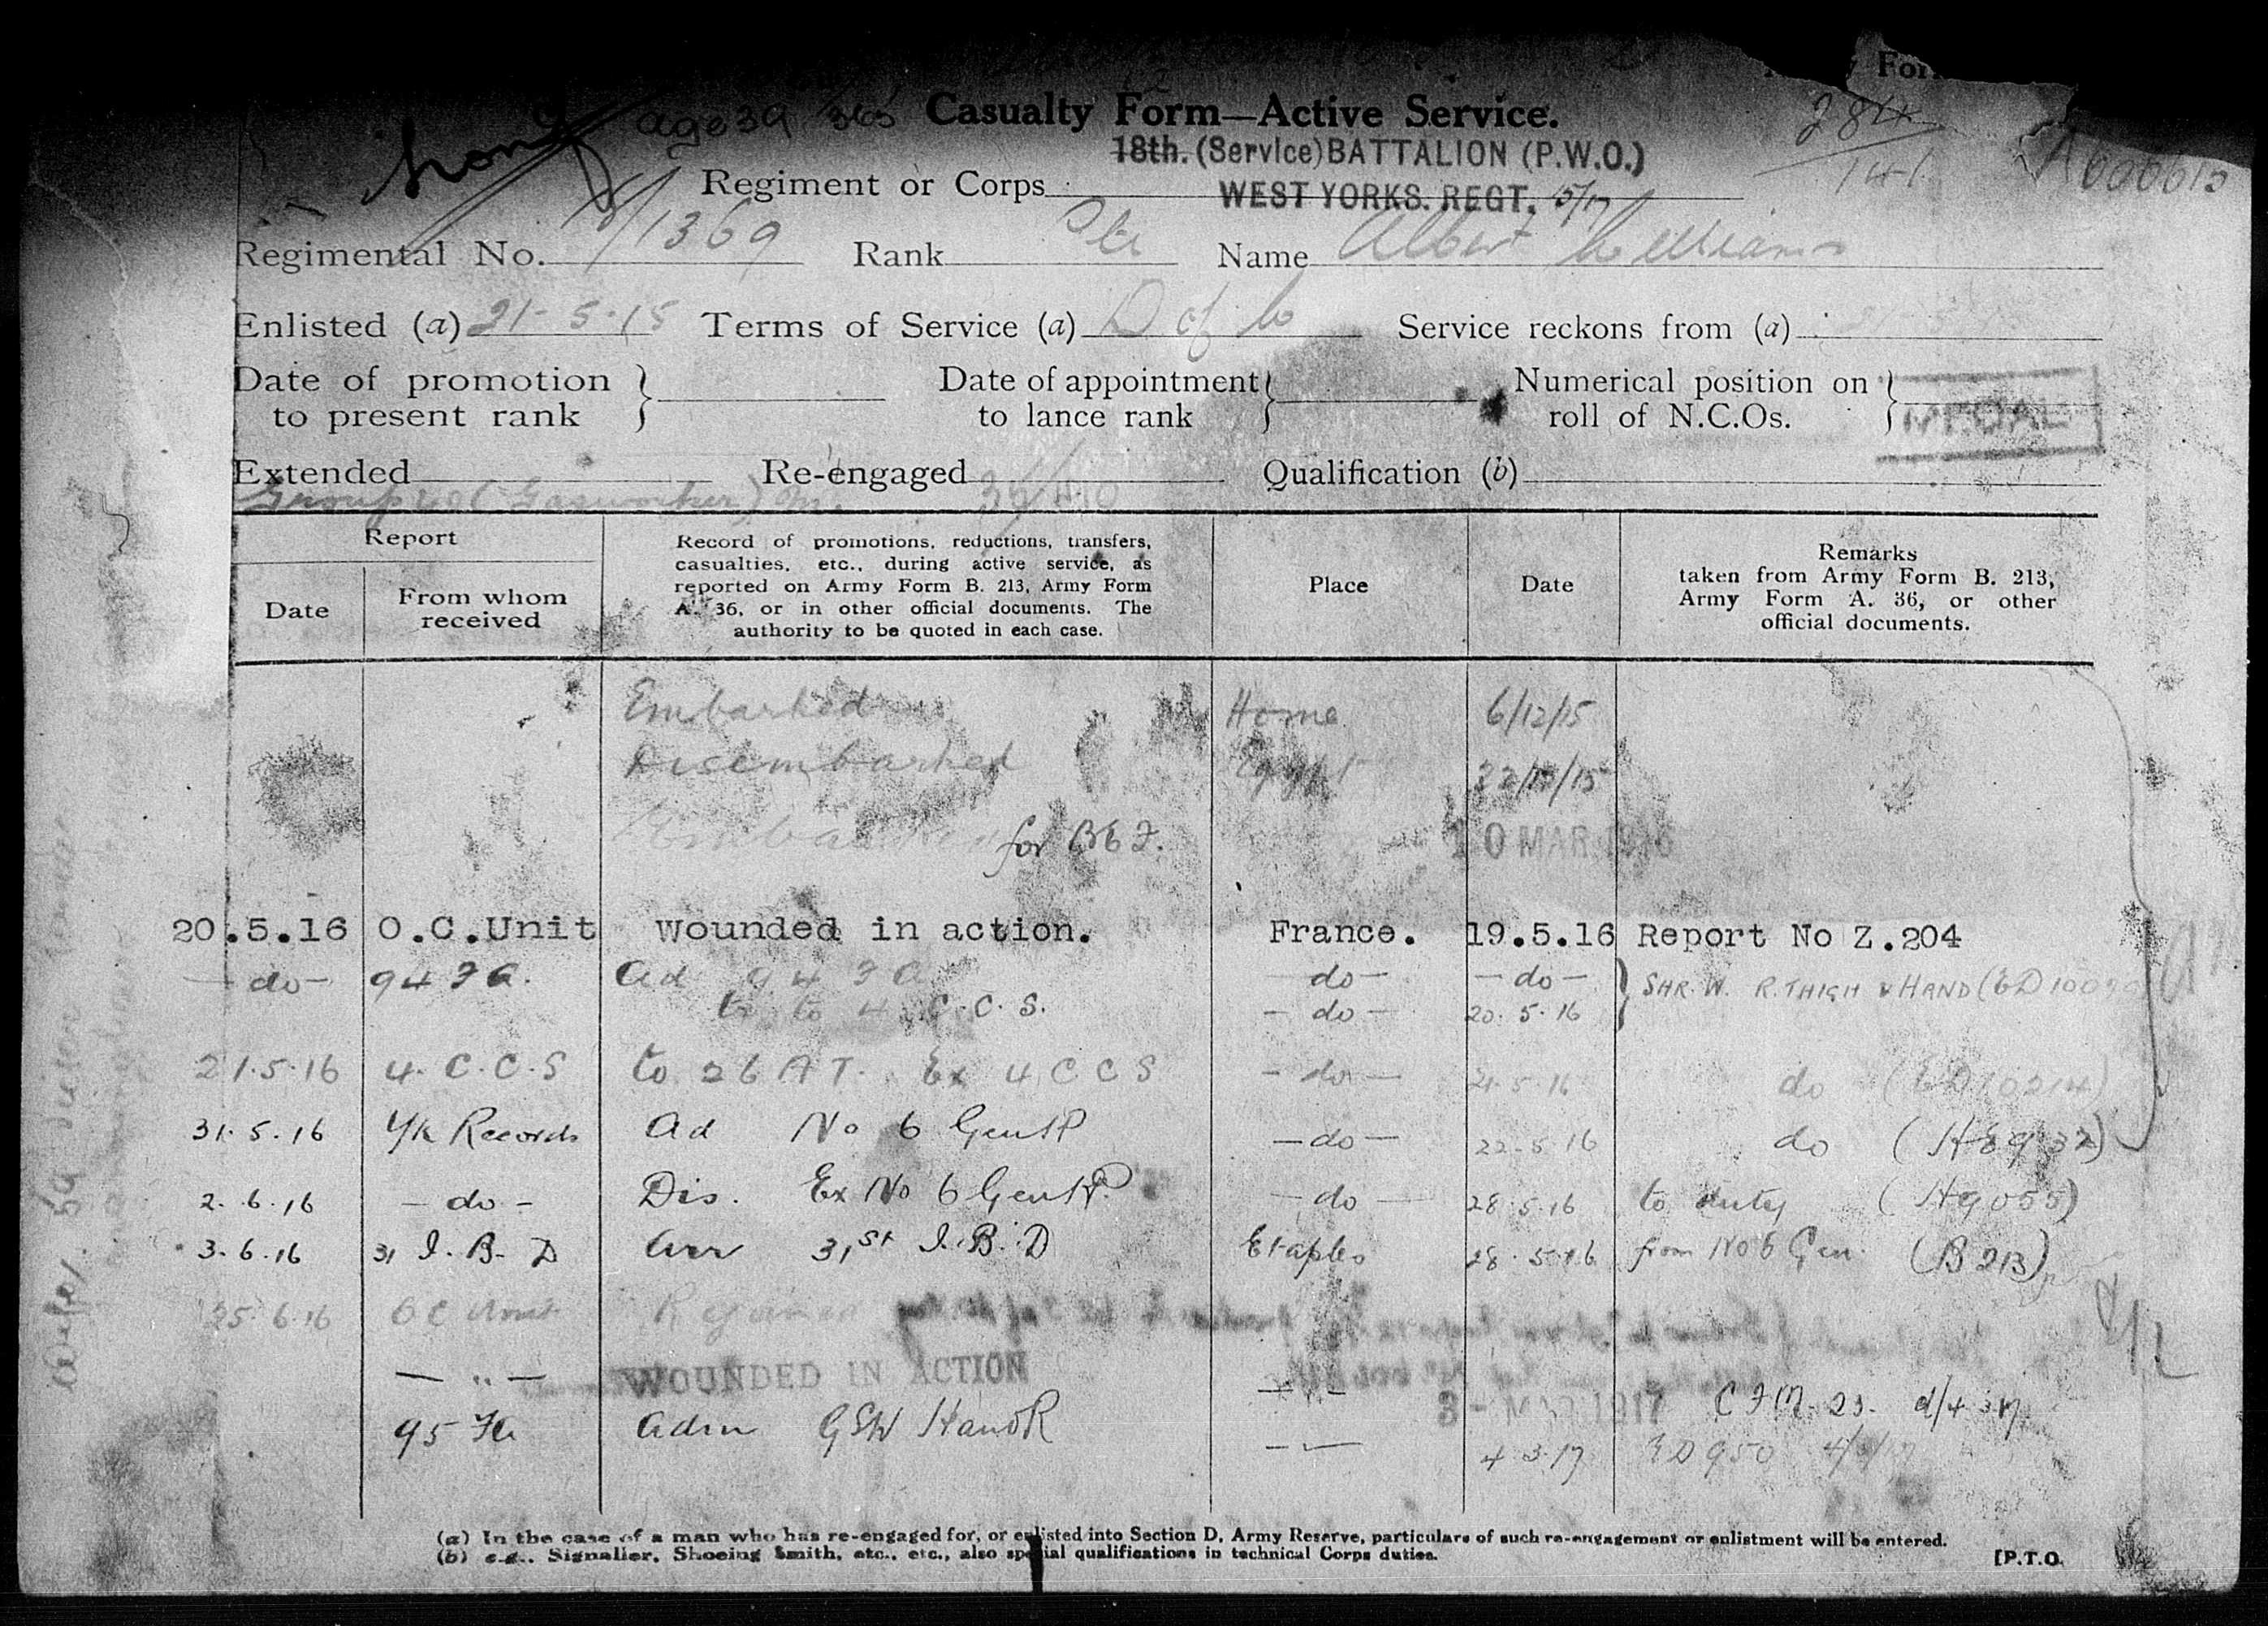 For
age 39 365 Casualty Form—Active Service. 284
141
18th. (Service) BATTALION (P.W.O.)
Regiment or Corps WEST YORKS. REGT. 15/17
Regimental No. 15/1369 Rank Pte Name Albert Williams
Enlisted (a) 21-5-15 Terms of Service (a) D of W Service reckons from (a)
Date of promotion to present rank } Date of appointment to lance rank } Numerical position on roll of N.C.Os. } MEDAL
Extended Re-engaged Qualification (b)
Group (Gasworker)
Report
Date
From whom received
Record of promotions, reductions, transfers,
casualties, etc., during active service, as
reported on Army Form B. 213, Army Form
A. 36, or in other official documents. The
authority to be quoted in each case.
Place
Date
Remarks
taken from Army Form B. 213,
Army Form A. 36, or other
official documents.
Embarked Home 6/12/15
Disembarked Egypt 22/12/15
Embarked for BEF. 10 MAR 1916
20.5.16 O.C.Unit Wounded in action. France. 19.5.16 Report No Z.204
-do- 94 FA. Ad 94 FA -do- -do- } SHR. W. R. THIGH & HAND
to 4 C.C.S. -do- 20.5.16
21.5.16 4. C.C.S to 26 AT. Ex 4 CCS -do- 21.5.16 do (ED10214)
31.5.16 Y/k Records Ad No 6 Gen H -do- 22.5.16 do
2.6.16 -do- Dis. Ex No 6 Gen H. -do- 28.5.16 to duty (H9055)
3.6.16 31 I.B.D Arr 31st I.B.D Etaples 28.5.16 from No 6 Gen. (B213)
25.6.16 OC Unit Rejoined
— " — WOUNDED IN ACTION — " — 3 - MAR 1917
95 FA Adm GSW Hand R — — 4.3.17 ED950
(a) In the case of a man who has re-engaged for, or enlisted into Section D, Army Reserve, particulars of such re-engagement or enlistment will be entered.
(b) e.g., Signaller, Shoeing Smith, etc., etc., also special qualifications in technical Corps duties.
[P.T.O.